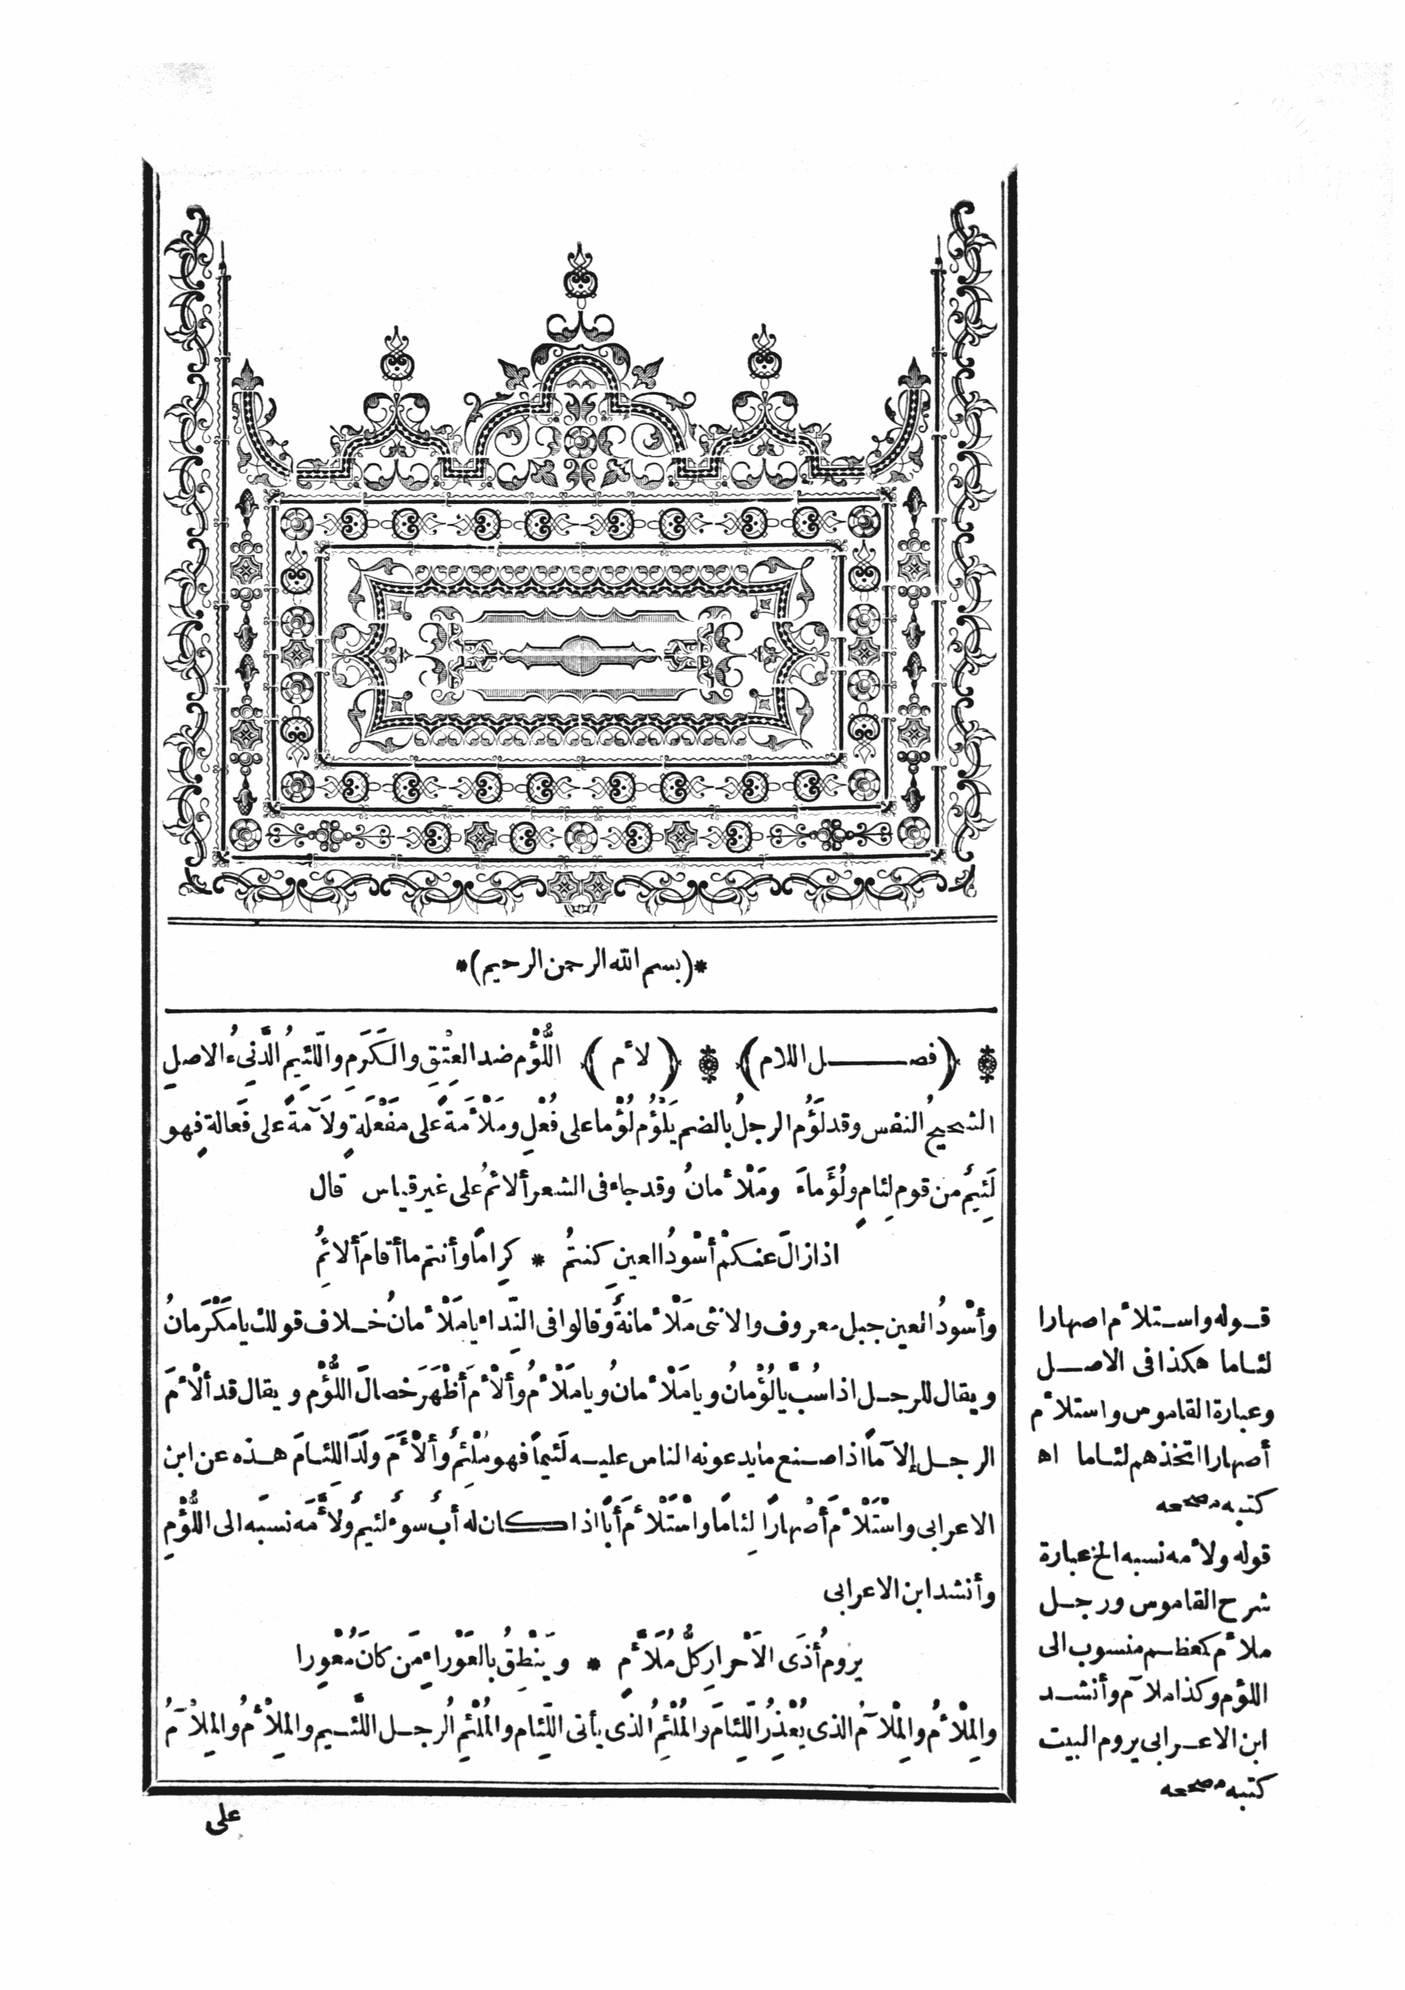 *(بسم الله الرحمن الرحيم)*
(فصــل اللام) (لأم) اللُّؤْم ضد العِتْقِ والكَرَمِ واللَّئِيمُ الدَّنِيءُ الاصلِ
الشحيحُ النفس وقد لَؤُم الرجلُ بالضم يَلْؤُم لُؤْما على فُعْلٍ ومَلْأَمَةً على مَفْعَلَةٍ ولَآمةً على فَعالة فهو
لَئِيمٌ من قوم لِئامٍ ولُؤَماءَ ومَلْأَمانُ وقد جاء فى الشعر ألائمُ على غير قياس قال
اذا زالَ عنكمْ أسْودُ العينِ كنتمُ * كِرامًا وأنتم ما أقامَ ألائمُ
وأسْودُ العين جبل معروف والانثى مَلْأَمانةٌ وقالوا فى النِّداء يامَلْأَمانُ خلاف قولك يامَكْرَمانُ
ويقال للرجل اذا سُبَّ يالُؤْمانُ ويامَلْأَمانُ ويامَلْأَمُ وألْأَمَ أظْهَرَ خصالَ اللُّؤْم ويقال قد ألْأَمَ
الرجل إلآمًا اذا صنع ما يدعونه الناس عليه لَئيماً فهو مُلْئِمٌ وألْأَمَ ولَدَ اللِّئامَ هذه عن ابن
الاعرابى واسْتَلْأَمَ أصْهارًا لِئامًا واسْتَلْأَمَ أبًا اذا كان له أبُ سوءٍ لئيمٌ ولأَّمَه نسبَه الى اللُّؤْمِ
وأنشد ابن الاعرابى
يرومُ أذَى الاَحرارِ كلُّ مُلَأَّمٍ * ويَنْطِقُ بالعَوْراءِ مَن كانَ مُعْوِرا
والمِلْأَمُ والمِلْآمُ الذى يُعْذِرُ اللِّئامَ والمُلْئِمُ الذى يأتى اللِّئام والمُلْئِمُ الرجل اللَّئيم والمِلْأَمُ والمِلْآمُ
على
قوله واستلأم اصهارا
لئاما هكذا فى الاصل
وعبارة القاموس واستلأم
أصهارا اتخذهم لئاما اه
كتبه مصححه
قوله ولأمه نسبه الخ عبارة
شرح القاموس ورجل
ملأم كمعظم منسوب الى
اللؤم وكذا ملآم وأنشد
ابن الاعرابى يروم البيت
كتبه مصححه